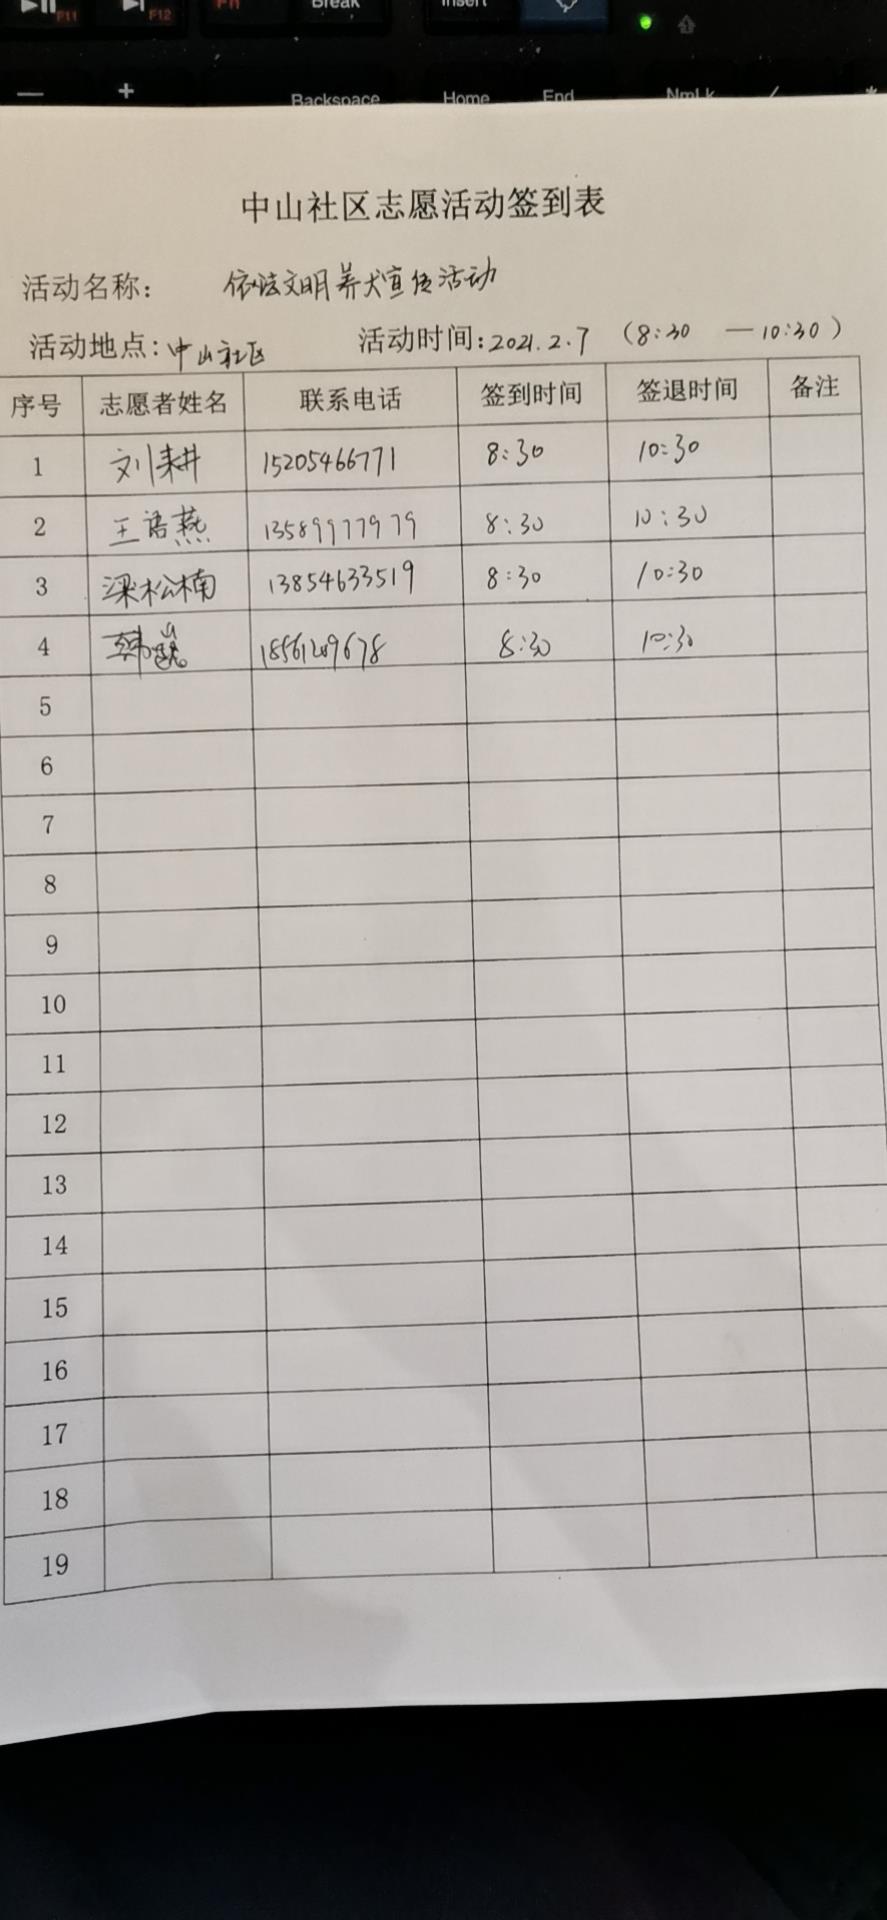 F11 F12 Fn Break Insert
— + Backspace Home End NmLk / *
中山社区志愿活动签到表
活动名称: 依法文明养犬宣传活动
活动地点:中山社区 活动时间:2021.2.7 (8:30 —10:30)
序号 志愿者姓名 联系电话 签到时间 签退时间 备注
1 刘耕 15205466771 8:30 10:30
2 王语燕 13589977979 8:30 10:30
3 梁松楠 13854633519 8:30 10:30
4 韩 18561209678 8:30 10:30
5
6
7
8
9
10
11
12
13
14
15
16
17
18
19